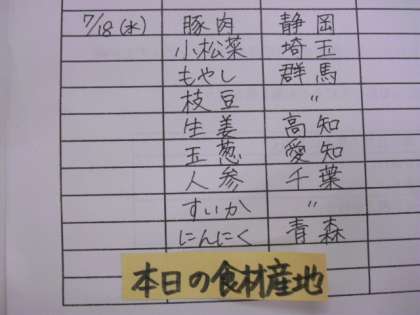 7/18(水) 豚肉 静岡
小松菜 埼玉
もやし 群馬
枝豆 〃
生姜 高知
玉葱 愛知
人参 千葉
すいか 〃
にんにく 青森
本日の食材産地